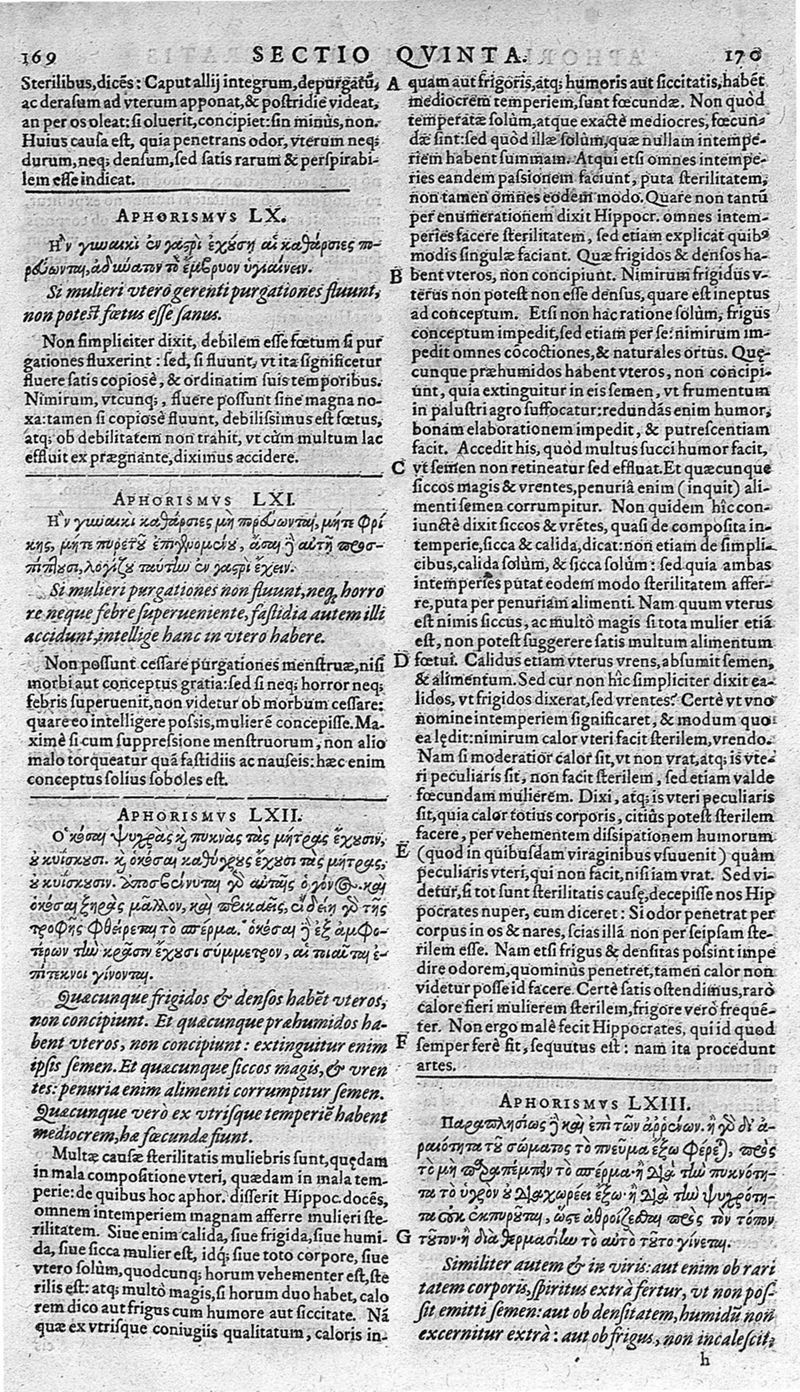 169 SECTIO QVINTA. 170
Sterilibus, dicēs: Caput allij integrum, depurgatū,
ac derasum ad vterum apponat, & postridie videat,
an per os oleat: si oluerit, concipiet: sin minùs, non.
Huius causa est, quia penetrans odor, vterum neq;
durum, neq; densum, sed satis rarum & perspirabi-
lem esse indicat.
APHORISMVS LX.
Ἢν γυναικὶ ἐν γαστρὶ ἐχούσῃ αἱ καθάρσιες πο-
ρεύωνται, ἀδύνατον τὸ ἔμβρυον ὑγιαίνειν.
Si mulieri vtero gerenti purgationes fluunt,
non potest fœtus esse sanus.
Non simpliciter dixit, debilem esse fœtum si pur
gationes fluxerint: sed, si fluunt, vt ita significetur
fluere satis copiosè, & ordinatim suis temporibus.
Nimirum, vtcunq;, fluere possunt sine magna no
xa: tamen si copiosè fluunt, debilissimus est fœtus,
atq; ob debilitatem non trahit, vt cùm multum lac
effluit ex prægnante, diximus accidere.
APHORISMVS LXI.
Ἢν γυναικὶ καθάρσιες μὴ πορεύωνται, μήτε φρί
κης, μήτε πυρετοῦ ἐπιγινομένου, ἄσαι ἢ αὐτῇ προσ-
πίπτουσι, λογίζου ταύτην ἐν γαστρὶ ἔχειν.
Si mulieri purgationes non fluunt, neq; horro
re neque febre superueniente, fastidia autem illi
accidunt, intellige hanc in vtero habere.
Non possunt cessare purgationes menstruæ, nisi
morbi aut conceptus gratia: sed si neq; horror neq;
febris superuenit, non videtur ob morbum cessare:
quare eo intelligere possis, mulierē concepisse. Ma-
ximè si cum suppressione menstruorum, non alio
malo torqueatur quā fastidiis ac nauseis: hæc enim
conceptus solius soboles est.
APHORISMVS LXII.
Ὁκόσαι ψυχρὰς κ̀ πυκνὰς τὰς μήτρας ἔχουσιν,
οὐ κυΐσκουσι. κ̀ ὁκόσαι καθύγρους ἔχουσι τὰς μήτρας,
οὐ κυΐσκουσιν. ἀποσβέννυται γὸ αὐταῖς ὁ γόνος. καὶ
ὁκόσαι ξηρὰς μᾶλλον, καὶ περικαεῖς, ἐνδείῃ γὸ τῆς
τροφῆς φθείρεται τὸ σπέρμα. ὁκόσαι ἢ ἐξ ἀμφο-
τέρων τὴν κρᾶσιν ἔχουσι σύμμετρον, αἱ τοιαῦται ἐ-
πίτεκνοι γίνονται.
Quæcunque frigidos & densos habēt vteros,
non concipiunt. Et quæcunque præhumidos ha-
bent vteros, non concipiunt: extinguitur enim
ipsis semen. Et quæcunque siccos magis, & vren
tes: penuria enim alimenti corrumpitur semen.
Quæcunque verò ex vtrisque temperiē habent
mediocrem, hæ fœcundæ fiunt.
Multæ causæ sterilitatis muliebris sunt, quędam
in mala compositione vteri, quædam in mala tem-
perie: de quibus hoc aphor. disserit Hippoc. docēs,
omnem intemperiem magnam afferre mulieri ste-
rilitatem. Siue enim calida, siue frigida, siue humi-
da, siue sicca mulier est, idq; siue toto corpore, siue
vtero solùm, quodcunq; horum vehementer est, ste
rilis est: atq; multò magis, si horum duo habet, calo
rem dico aut frigus cum humore aut siccitate. Nā
quæ ex vtrisque coniugiis qualitatum, caloris in-
A quam aut frigoris, atq; humoris aut siccitatis, habēt
mediocrem temperiem, sunt fœcundæ. Non quòd
temperatæ solùm, atque exactè mediocres, fœcun-
dæ sint: sed quòd illæ solùm, quæ nullam intempe-
riem habent summam. Atqui etsi omnes intempe-
ries eandem passionem faciunt, puta sterilitatem,
non tamen omnes eodem modo. Quare non tantū
per enumerationem dixit Hippocr. omnes intem-
peries facere sterilitatem, sed etiam explicat quibꝰ
modis singulæ faciant. Quæ frigidos & densos ha-
B bent vteros, non concipiunt. Nimirum frigidus v-
terus non potest non esse densus, quare est ineptus
ad conceptum. Etsi non hac ratione solùm, frigus
conceptum impedit, sed etiam per se: nimirum im-
pedit omnes cōcoctiones, & naturales ortus. Quę-
cunque præhumidos habent vteros, non concipi-
unt, quia extinguitur in eis semen, vt frumentum
in palustri agro suffocatur: redundās enim humor,
bonam elaborationem impedit, & putrescentiam
facit. Accedit his, quòd multus succi humor facit,
C vt semen non retineatur sed effluat. Et quæcunque
siccos magis & vrentes, penuriâ enim (inquit) ali-
menti semen corrumpitur. Non quidem hîc con-
iunctè dixit siccos & vrētes, quasi de composita in-
temperie, sicca & calida, dicat: non etiam de simpli-
cibus, calida solùm, & sicca solùm: sed quia ambas
intemperies putat eodem modo sterilitatem affer-
re, puta per penuriam alimenti. Nam quum vterus
est nimis siccus, ac multò magis si tota mulier etiā
est, non potest suggerere satis multum alimentum
D fœtui. Calidus etiam vterus vrens, absumit semen,
& alimentum. Sed cur non hîc simpliciter dixit ca-
lidos, vt frigidos dixerat, sed vrentes? Certè vt vno
nomine intemperiem significaret, & modum quo
ea lędit: nimirum calor vteri facit sterilem, vrendo.
Nam si moderatior calor sit, vt non vrat, atq; is vte-
ri peculiaris sit, non facit sterilem, sed etiam valde
fœcundam mulierem. Dixi, atq; is vteri peculiaris
sit, quia calor totius corporis, citiùs potest sterilem
facere, per vehementem dissipationem humorum
E (quod in quibusdam viraginibus vsuuenit) quàm
peculiaris vteri, qui non facit, nisi iam vrat. Sed vi-
detur, si tot sunt sterilitatis causę, decepisse nos Hip
pocrates nuper, cum diceret: Si odor penetrat per
corpus in os & nares, scias illā non per seipsam ste-
rilem esse. Nam etsi frigus & densitas possint impe
dire odorem, quominùs penetret, tamen calor non
videtur posse id facere. Certè satis ostendimus, rarò
calore fieri mulierem sterilem, frigore verò frequē-
ter. Non ergo malè fecit Hippocrates, qui id quod
F semper ferè fit, sequutus est: nam ita procedunt
artes.
APHORISMVS LXIII.
Παραπλησίως ἢ καὶ ἐπὶ τῶν ἀῤῥένων. ἢ γὸ διὰ ἀ-
ραιότητα τοῦ σώματος τὸ πνεῦμα ἔξω φέρεται, πρὸς
τὸ μὴ παραπέμπειν τὸ σπέρμα· ἢ διὰ τὴν πυκνότη-
τα τὸ ὑγρὸν οὐ διαχωρέει ἔξω· ἢ διὰ τὴν ψυχρότη-
τα οὐκ ἐκπυροῦται, ὥστε ἀθροίζεσθαι πρὸς τὸν τόπον
G τοῦτον· ἢ διὰ θερμασίην τὸ αὐτὸ τοῦτο γίνεται.
Similiter autem & in viris: aut enim ob rari
tatem corporis, spiritus extrà fertur, vt non pos-
sit emitti semen: aut ob densitatem, humidū non
excernitur extrà: aut ob frigus, non incalescit,
h